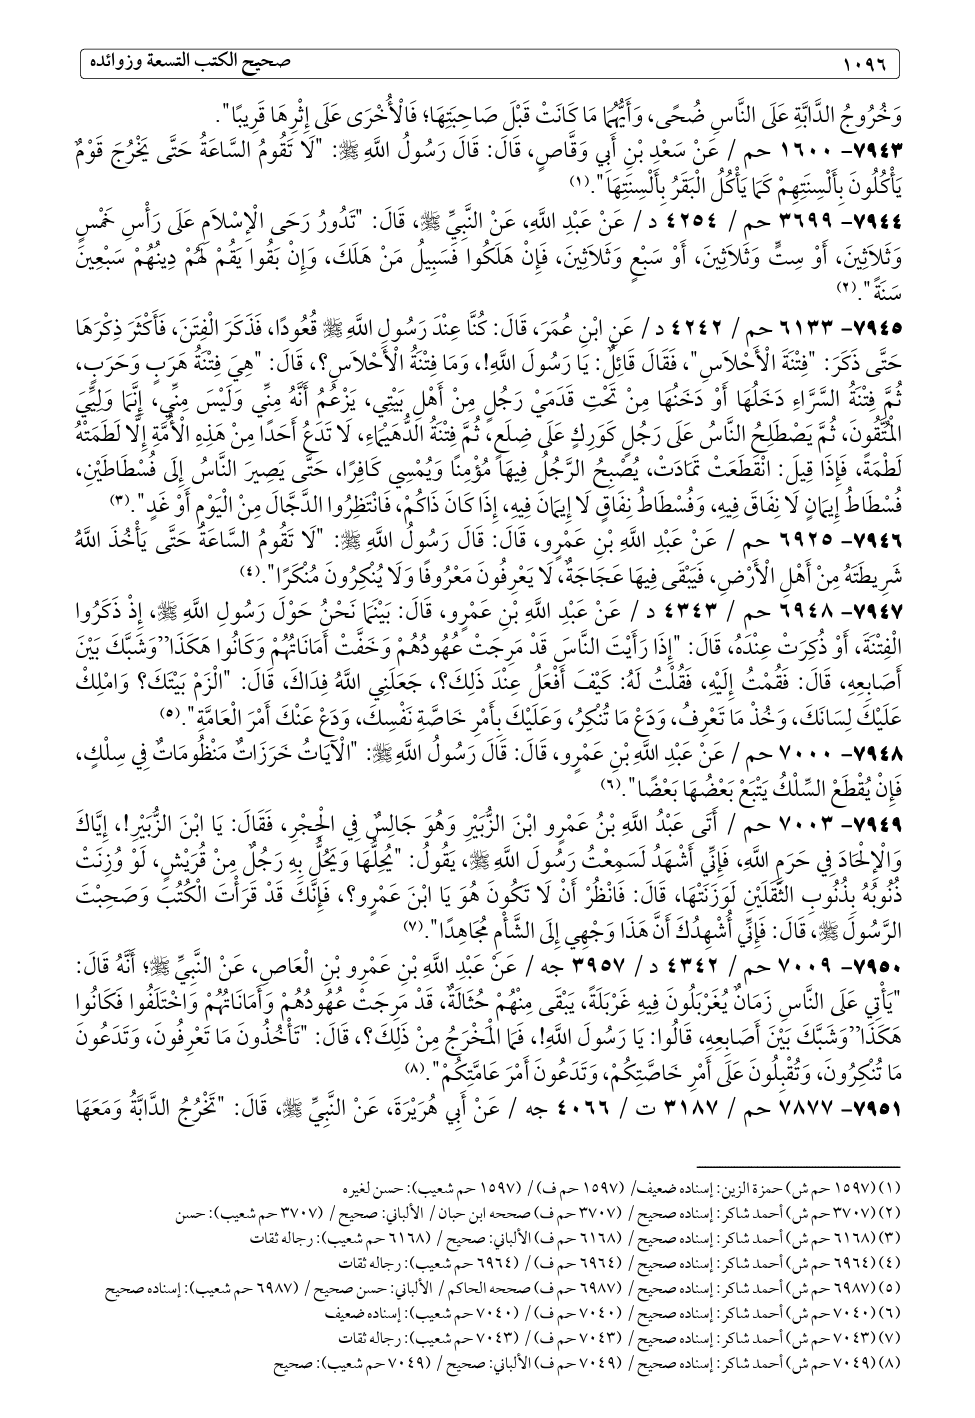 ١٠٩٦ صحيح الكتب التسعة وزوائده
وَخُرُوجُ الدَّابَّةِ عَلَى النَّاسِ ضُحًى، وَأَيُّهُمَا مَا كَانَتْ قَبْلَ صَاحِبَتِهَا؛ فَالْأُخْرَى عَلَى إِثْرِهَا قَرِيبًا".
٧٩٤٣- ١٦٠٠ حم / عَنْ سَعْدِ بْنِ أَبِي وَقَّاصٍ، قَالَ: قَالَ رَسُولُ اللَّهِ ﷺ: "لَا تَقُومُ السَّاعَةُ حَتَّى يَخْرُجَ قَوْمٌ
يَأْكُلُونَ بِأَلْسِنَتِهِمْ كَمَا يَأْكُلُ الْبَقَرُ بِأَلْسِنَتِهَا".(١)
٧٩٤٤- ٣٦٩٩ حم / ٤٢٥٤ د / عَنْ عَبْدِ اللَّهِ، عَنْ النَّبِيِّ ﷺ، قَالَ: "تَدُورُ رَحَى الْإِسْلَامِ عَلَى رَأْسِ خَمْسٍ
وَثَلَاثِينَ، أَوْ سِتٍّ وَثَلَاثِينَ، أَوْ سَبْعٍ وَثَلَاثِينَ، فَإِنْ هَلَكُوا فَسَبِيلُ مَنْ هَلَكَ، وَإِنْ بَقُوا يَقُمْ لَهُمْ دِينُهُمْ سَبْعِينَ
سَنَةً".(٢)
٧٩٤٥- ٦١٣٣ حم / ٤٢٤٢ د / عَنِ ابْنِ عُمَرَ، قَالَ: كُنَّا عِنْدَ رَسُولِ اللَّهِ ﷺ قُعُودًا، فَذَكَرَ الْفِتَنَ، فَأَكْثَرَ ذِكْرَهَا
حَتَّى ذَكَرَ: "فِتْنَةَ الْأَحْلَاسِ"، فَقَالَ قَائِلٌ: يَا رَسُولَ اللَّهِ!، وَمَا فِتْنَةُ الْأَحْلَاسِ؟، قَالَ: "هِيَ فِتْنَةُ هَرَبٍ وَحَرَبٍ،
ثُمَّ فِتْنَةُ السَّرَّاءِ دَخَلُهَا أَوْ دَخَنُهَا مِنْ تَحْتِ قَدَمَيْ رَجُلٍ مِنْ أَهْلِ بَيْتِي، يَزْعُمُ أَنَّهُ مِنِّي وَلَيْسَ مِنِّي، إِنَّمَا وَلِيِّيَ
الْمُتَّقُونَ، ثُمَّ يَصْطَلِحُ النَّاسُ عَلَى رَجُلٍ كَوَرِكٍ عَلَى ضِلَعٍ، ثُمَّ فِتْنَةُ الدُّهَيْمَاءِ، لَا تَدَعُ أَحَدًا مِنْ هَذِهِ الْأُمَّةِ إِلَّا لَطَمَتْهُ
لَطْمَةً، فَإِذَا قِيلَ: انْقَطَعَتْ تَمَادَتْ، يُصْبِحُ الرَّجُلُ فِيهَا مُؤْمِنًا وَيُمْسِي كَافِرًا، حَتَّى يَصِيرَ النَّاسُ إِلَى فُسْطَاطَيْنِ،
فُسْطَاطُ إِيمَانٍ لَا نِفَاقَ فِيهِ، وَفُسْطَاطُ نِفَاقٍ لَا إِيمَانَ فِيهِ، إِذَا كَانَ ذَاكُمْ، فَانْتَظِرُوا الدَّجَّالَ مِنَ الْيَوْمِ أَوْ غَدٍ".(٣)
٧٩٤٦- ٦٩٢٥ حم / عَنْ عَبْدِ اللَّهِ بْنِ عَمْرٍو، قَالَ: قَالَ رَسُولُ اللَّهِ ﷺ: "لَا تَقُومُ السَّاعَةُ حَتَّى يَأْخُذَ اللَّهُ
شَرِيطَتَهُ مِنْ أَهْلِ الْأَرْضِ، فَيَبْقَى فِيهَا عَجَاجَةٌ، لَا يَعْرِفُونَ مَعْرُوفًا وَلَا يُنْكِرُونَ مُنْكَرًا".(٤)
٧٩٤٧- ٦٩٤٨ حم / ٤٣٤٣ د / عَنْ عَبْدِ اللَّهِ بْنِ عَمْرٍو، قَالَ: بَيْنَمَا نَحْنُ حَوْلَ رَسُولِ اللَّهِ ﷺ، إِذْ ذَكَرُوا
الْفِتْنَةَ، أَوْ ذُكِرَتْ عِنْدَهُ، قَالَ: "إِذَا رَأَيْتَ النَّاسَ قَدْ مَرِجَتْ عُهُودُهُمْ وَخَفَّتْ أَمَانَاتُهُمْ وَكَانُوا هَكَذَا" وَشَبَّكَ بَيْنَ
أَصَابِعِهِ، قَالَ: فَقُمْتُ إِلَيْهِ، فَقُلْتُ لَهُ: كَيْفَ أَفْعَلُ عِنْدَ ذَلِكَ؟، جَعَلَنِي اللَّهُ فِدَاكَ، قَالَ: "الْزَمْ بَيْتَكَ؟ وَامْلِكْ
عَلَيْكَ لِسَانَكَ، وَخُذْ مَا تَعْرِفُ، وَدَعْ مَا تُنْكِرُ، وَعَلَيْكَ بِأَمْرِ خَاصَّةِ نَفْسِكَ، وَدَعْ عَنْكَ أَمْرَ الْعَامَّةِ".(٥)
٧٩٤٨- ٧٠٠٠ حم / عَنْ عَبْدِ اللَّهِ بْنِ عَمْرٍو، قَالَ: قَالَ رَسُولُ اللَّهِ ﷺ: "الْآيَاتُ خَرَزَاتٌ مَنْظُومَاتٌ فِي سِلْكٍ،
فَإِنْ يُقْطَعْ السِّلْكُ يَتْبَعْ بَعْضُهَا بَعْضًا".(٦)
٧٩٤٩- ٧٠٠٣ حم / أَتَى عَبْدُ اللَّهِ بْنُ عَمْرٍو ابْنَ الزُّبَيْرِ وَهُوَ جَالِسٌ فِي الْحِجْرِ، فَقَالَ: يَا ابْنَ الزُّبَيْرِ!، إِيَّاكَ
وَالْإِلْحَادَ فِي حَرَمِ اللَّهِ، فَإِنِّي أَشْهَدُ لَسَمِعْتُ رَسُولَ اللَّهِ ﷺ، يَقُولُ: "يُحِلُّهَا وَيَحُلُّ بِهِ رَجُلٌ مِنْ قُرَيْشٍ، لَوْ وُزِنَتْ
ذُنُوبُهُ بِذُنُوبِ الثَّقَلَيْنِ لَوَزَنَتْهَا، قَالَ: فَانْظُرْ أَنْ لَا تَكُونَ هُوَ يَا ابْنَ عَمْرٍو؟، فَإِنَّكَ قَدْ قَرَأْتَ الْكُتُبَ وَصَحِبْتَ
الرَّسُولَ ﷺ، قَالَ: فَإِنِّي أُشْهِدُكَ أَنَّ هَذَا وَجْهِي إِلَى الشَّأْمِ مُجَاهِدًا".(٧)
٧٩٥٠- ٧٠٠٩ حم / ٤٣٤٢ د / ٣٩٥٧ جه / عَنْ عَبْدِ اللَّهِ بْنِ عَمْرِو بْنِ الْعَاصِ، عَنْ النَّبِيِّ ﷺ؛ أَنَّهُ قَالَ:
"يَأْتِي عَلَى النَّاسِ زَمَانٌ يُغَرْبَلُونَ فِيهِ غَرْبَلَةً، يَبْقَى مِنْهُمْ حُثَالَةٌ، قَدْ مَرِجَتْ عُهُودُهُمْ وَأَمَانَاتُهُمْ وَاخْتَلَفُوا فَكَانُوا
هَكَذَا" وَشَبَّكَ بَيْنَ أَصَابِعِهِ، قَالُوا: يَا رَسُولَ اللَّهِ!، فَمَا الْمَخْرَجُ مِنْ ذَلِكَ؟، قَالَ: "تَأْخُذُونَ مَا تَعْرِفُونَ، وَتَدَعُونَ
مَا تُنْكِرُونَ، وَتُقْبِلُونَ عَلَى أَمْرِ خَاصَّتِكُمْ، وَتَدَعُونَ أَمْرَ عَامَّتِكُمْ".(٨)
٧٩٥١- ٧٨٧٧ حم / ٣١٨٧ ت / ٤٠٦٦ جه / عَنْ أَبِي هُرَيْرَةَ، عَنْ النَّبِيِّ ﷺ، قَالَ: "تَخْرُجُ الدَّابَّةُ وَمَعَهَا
(١) (١٥٩٧ حم ش) حمزة الزين: إسناده ضعيف/ (١٥٩٧ حم ف) / (١٥٩٧ حم شعيب): حسن لغيره
(٢) (٣٧٠٧ حم ش) أحمد شاكر: إسناده صحيح / (٣٧٠٧ حم ف) صححه ابن حبان / الألباني: صحيح / (٣٧٠٧ حم شعيب): حسن
(٣) (٦١٦٨ حم ش) أحمد شاكر: إسناده صحيح / (٦١٦٨ حم ف) الألباني: صحيح / (٦١٦٨ حم شعيب): رجاله ثقات
(٤) (٦٩٦٤ حم ش) أحمد شاكر: إسناده صحيح / (٦٩٦٤ حم ف) / (٦٩٦٤ حم شعيب): رجاله ثقات
(٥) (٦٩٨٧ حم ش) أحمد شاكر: إسناده صحيح / (٦٩٨٧ حم ف) صححه الحاكم / الألباني: حسن صحيح / (٦٩٨٧ حم شعيب): إسناده صحيح
(٦) (٧٠٤٠ حم ش) أحمد شاكر: إسناده صحيح / (٧٠٤٠ حم ف) / (٧٠٤٠ حم شعيب): إسناده ضعيف
(٧) (٧٠٤٣ حم ش) أحمد شاكر: إسناده صحيح / (٧٠٤٣ حم ف) / (٧٠٤٣ حم شعيب): رجاله ثقات
(٨) (٧٠٤٩ حم ش) أحمد شاكر: إسناده صحيح / (٧٠٤٩ حم ف) الألباني: صحيح / (٧٠٤٩ حم شعيب): صحيح